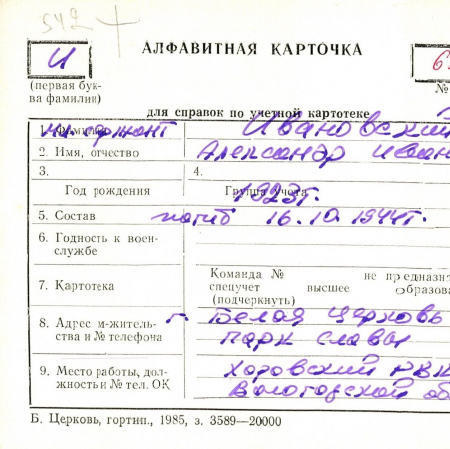 542
АЛФАВИТНАЯ КАРТОЧКА
И
(первая бук-
ва фамилии)
№
для справок по учетной картотеке
1. Фамилия мл. сержант Ивановский
2. Имя, отчество Александр Иван
3.
4.
Год рождения
Группа учета
1923г.
5. Состав погиб 16.10.1944г.
6. Годность к воен-
службе
7. Картотека
Команда № не предназнач
спецучет высшее образова
(подчеркнуть)
8. Адрес м-житель-
ства и № телефона
г. Белая Церковь
парк славы
9. Место работы, дол-
жность и № тел. ОК
РВК
Вологодской об
Б. Церковь, гортип., 1985, з. 3589—20000